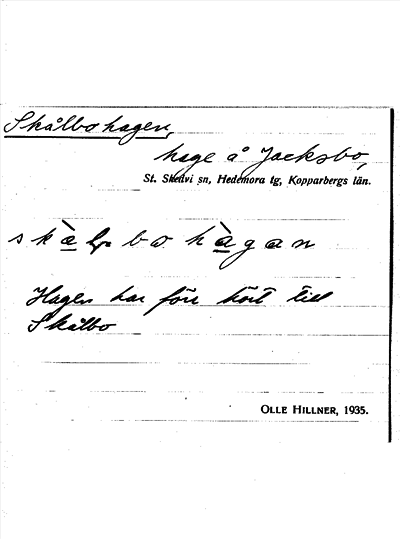 Skålbohagen,
hage å Jacksbo,
St. Skedvi sn, Hedemora tg, Kopparbergs län.
skàlbo hàgan
Hagen har förr hört till
Skålbo
OLLE HILLNER, 1935.